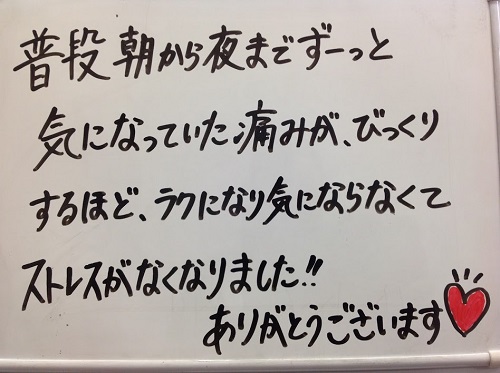 普段朝から夜までずーっと
気になっていた痛みが、びっくり
するほど、ラクになり気にならなくて
ストレスがなくなりました!!
ありがとうございます